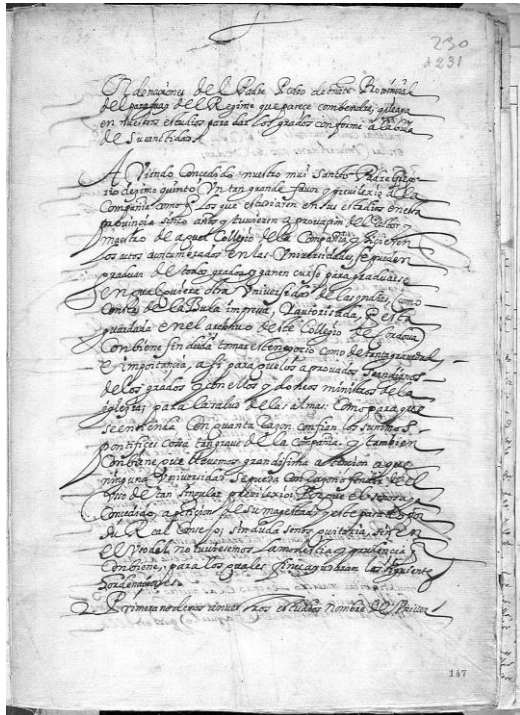 230
231
Ordenaciones del Padre Pedro de oñate Provinçial
del paraguay del Regimen que parece combendra, q̃ se aya
en nuestros estudios para dar los grados conforme a la bula
de Su antidad.
A Viendo Concedido nuestro mui Santo Padre Grego
rio deçimo quinto Vn tan grande fauor y preuilexio a la
Compañia como q̃ los que estudiaren en sus estudios en esta
prouincia sinco años y tuvieren aprouaçion del Rector y
maestro de aquel Collegio de la Compañia y hiçieren
los actos acostumbrados en las Vniversidades, se puedan
graduar de todos grados, y ganen curso para graduarse
en qualquiera otra Vniversidad de las yndias, como
consta de la Bula impresa, y autorisada, q̃ esta
guardada en el archivo de este Collegio de Cordova
Conbiene sin duda tomar este negocio como de tanta gravedad
e importancia, asi para que los aprovados Sean dignos
de los grados y con ellos ydoneos ministros de la
iglesia; para la salud de las almas: como para que
se entienda con quanta raçon confian los summos
pontifices cosa tan grave de la Compañia. y tambien
Conbiene, que llevemos grandisima atencion a que
ninguna Vniversidad se pueda con raçon ofender de el
Vso de tan singular previlexio: Porque el
Concedido, a peticion de Su magestad y este
Su Real Consejo; sin duda se nos quitaria, si en
el Vso del no tuvieremos la modestia y prudencia
Conbiene, para los quales fines ayudaran las siguientes
hordenaciones.
Primera no demos a nuestros estudios nombre de Vniver
147